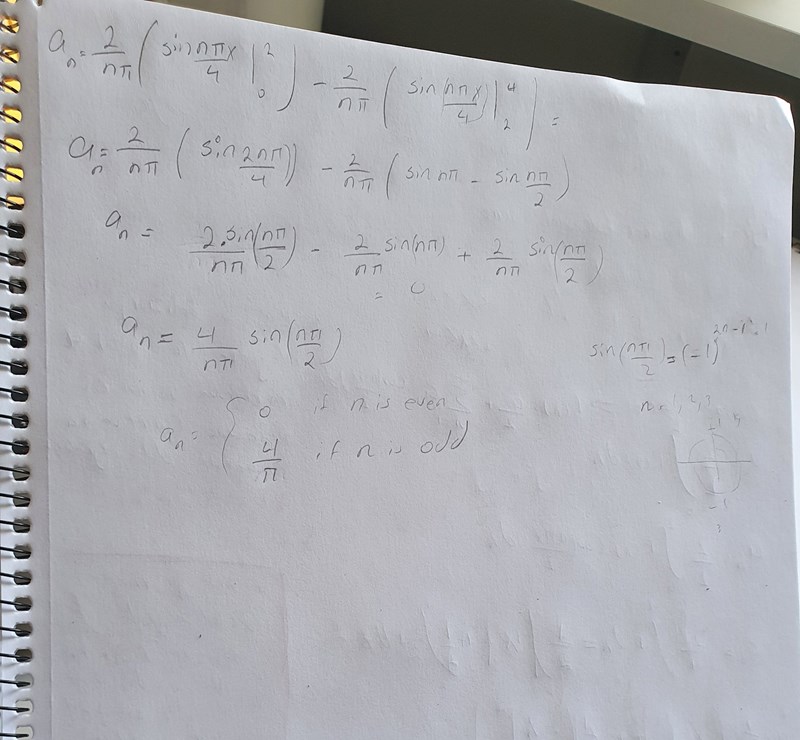 aₙ = 2/nπ ( sin nπx/4 |₀² ) - 2/nπ ( sin(nπx/4) |₂⁴ ) =
aₙ = 2/nπ ( sin 2nπ/4 ) ) - 2/nπ ( sin nπ - sin nπ/2 )
aₙ = 2·sin(nπ/2)/nπ - 2/nπ sin(nπ) + 2/nπ sin(nπ/2)
= 0
aₙ = 4/nπ sin(nπ/2)
sin(nπ/2) = (-1)
n = 1, 2, 3
aₙ = { 0 if n is even
4/π if n is odd